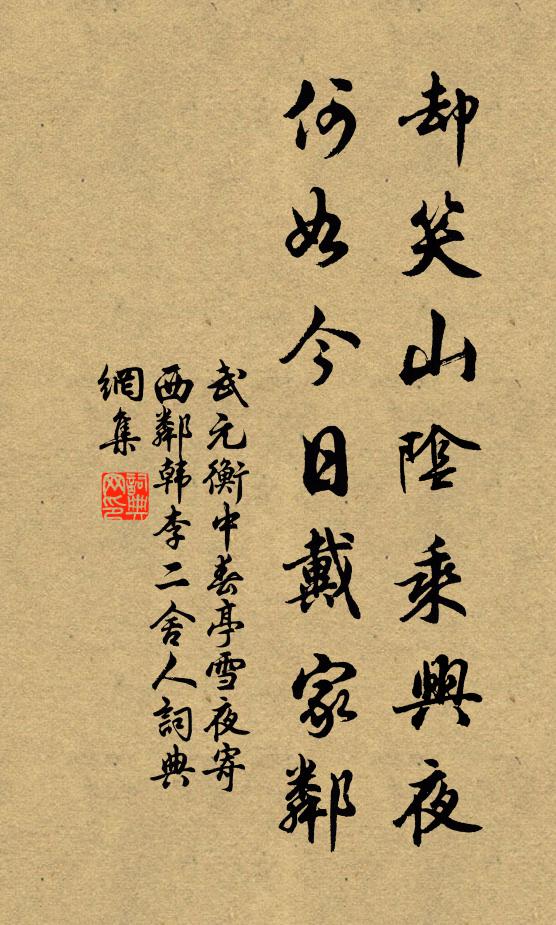 却笑山陰乘興夜
何如今日戴家鄰
武元衡中春亭雪夜寄
西鄰韩李二舍人詞典
網集
詞典
网印